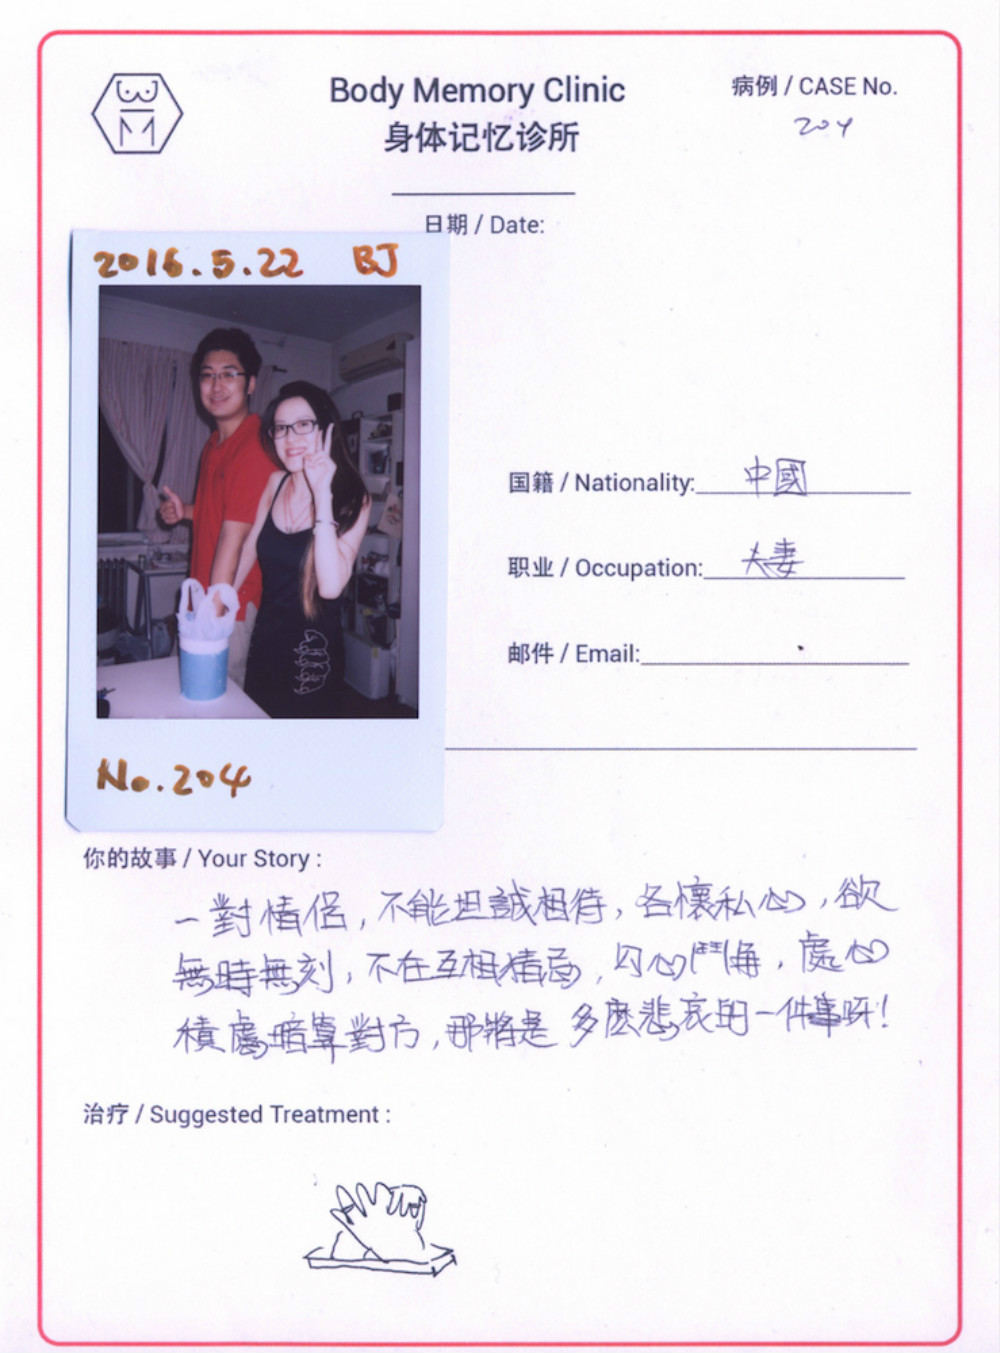 Body Memory Clinic
身体记忆诊所
病例 / CASE No.
204
日期 / Date:
2016.5.22 BJ
国籍 / Nationality: 中國
职业 / Occupation: 夫妻
邮件 / Email:
No.204
你的故事 / Your Story :
一對情侶，不能坦誠相待，各懷私心，欲
無時無刻，不在互相猜忌，勾心鬥角，處心
積慮暗算對方，那將是多麼悲哀的一件事呀！
治疗 / Suggested Treatment :